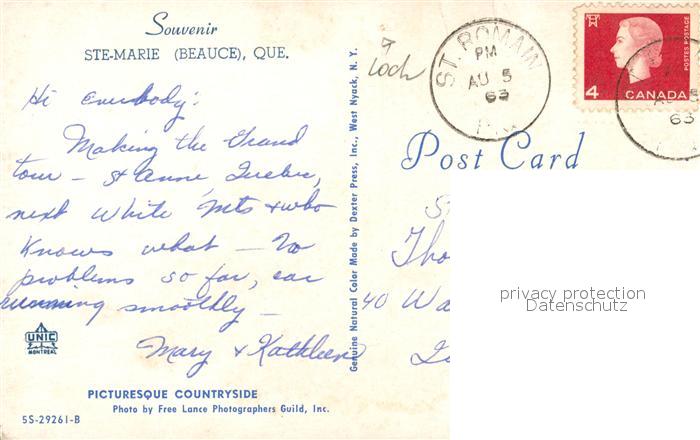 Souvenir
STE-MARIE (BEAUCE), QUE.
Hi Everybody:
Making the Grand
tour – St Anne, Quebec,
next White Mts + who
knows what – No
problems so far, car
running smoothly –
Mary + Kathleen
UNIC
MONTREAL
PICTURESQUE COUNTRYSIDE
Photo by Free Lance Photographers Guild, Inc.
5S-29261-B
Genuine Natural Color Made by Dexter Press, Inc., West Nyack, N. Y.
ST. ROMAIN
PM
AU 5
63
POSTES POSTAGE
4 CANADA
63
Post Card
Tho
40 Wa
privacy protection
Datenschutz